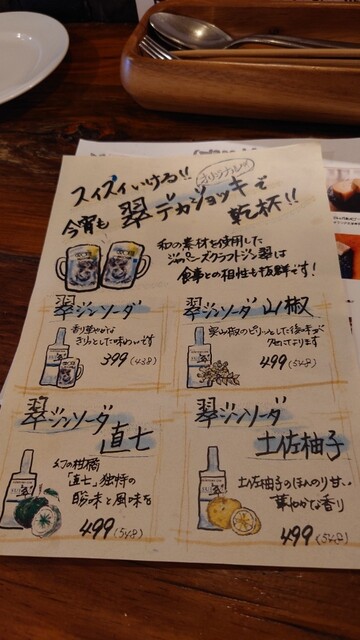 スイスイいける!!
オリジナル
今宵も 翠デカジョッキで
乾杯!!
和の素材を使用した
ジャパニーズクラフトジン翠は
食事との相性も抜群です!
翠ジンソーダ
香り華やかな
きりっとした味わいです
399(438)
翠ジンソーダ 山椒
実山椒のピリッとした後味が
クセになります
499(548)
翠ジンソーダ
直七
幻の柑橘
「直七」独特の
酸味と風味を
499(548)
翠ジンソーダ
土佐柚子
土佐柚子のほんのり甘い
華やかな香り
499(548)